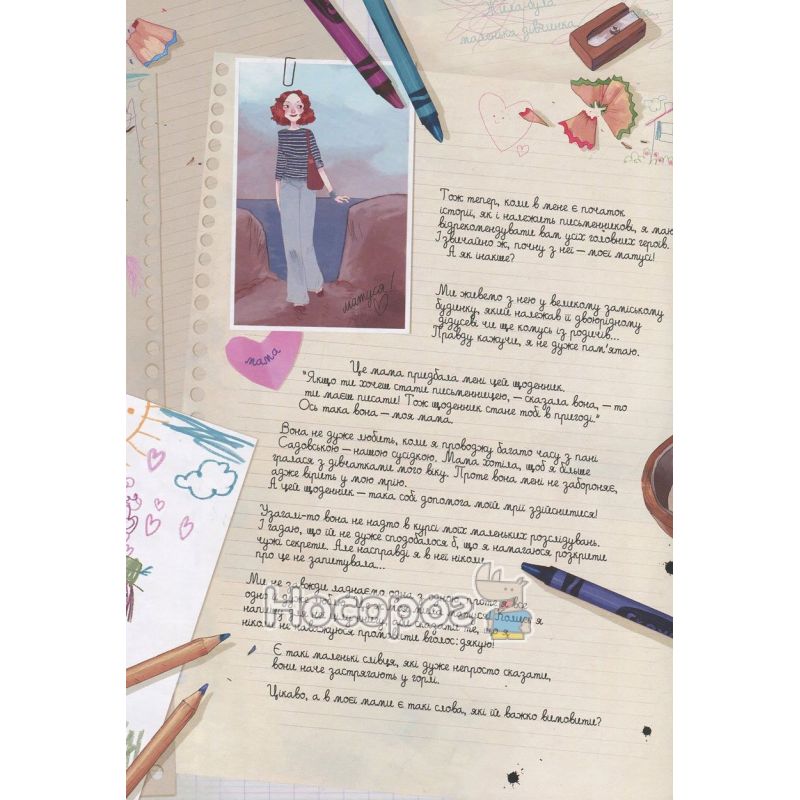 Жила-була
маленька дівчинка
Тож тепер, коли в мене є початок
історії, як і належить письменникові, я маю
відрекомендувати вам усіх головних героїв.
І звичайно ж, почну з неї — моєї матусі!
А як інакше?
матуся!
Ми живемо з нею у великому заміському
будинку, який належав її двоюрідному
дідусеві чи ще комусь із родичів...
Правду кажучи, я не дуже пам'ятаю.
мама
Це мама придбала мені цей щоденник.
"Якщо ти хочеш стати письменницею, — сказала вона, — то
ти маєш писати! Тож щоденник стане тобі в пригоді."
Ось така вона — моя мама.
Вона не дуже любить, коли я проводжу багато часу з пані
Садовською — нашою сусідкою. Мама хотіла, щоб я більше
гралася з дівчатками мого віку. Проте вона мені не забороняє,
адже вірить у мою мрію.
А цей щоденник — така собі допомога моїй мрії здійснитися!
Узагалі-то вона не надто в курсі моїх маленьких розслідувань.
І гадаю, що їй не дуже сподобалося б, що я намагаюся розкрити
чужі секрети. Але насправді я в неї ніколи
про це не запитувала...
Ми не завжди ладнаємо одна з одною, проте я все
Носорог
ніколи не наважуюся промовити вголос: дякую!
Є такі маленькі слівця, які дуже непросто сказати,
вони наче застрягають у горлі.
Цікаво, а в моєї мами є такі слова, які їй важко вимовити?